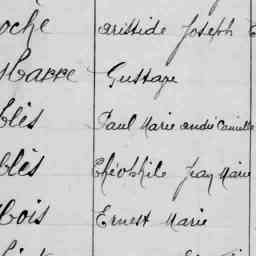 oche Aristide Joseph
Harre Gustave
blés Paul Marie André Camille
blés Théophile Jean Marie
bois Ernest Marie